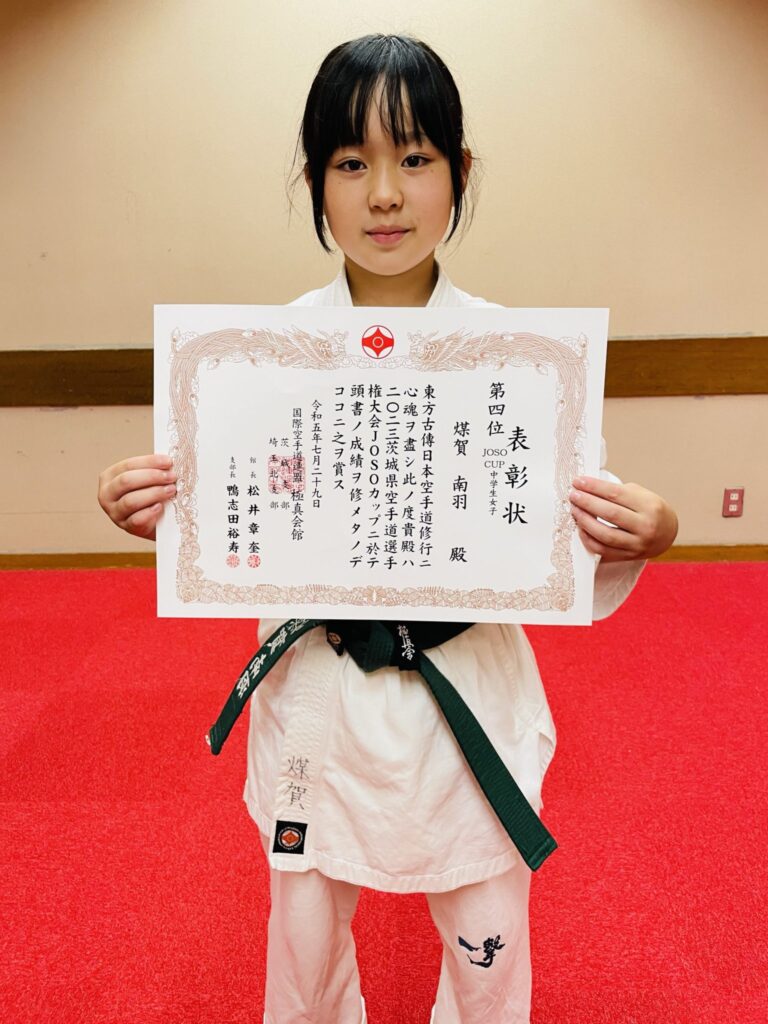 表彰状
第四位
JOSO CUP
中学生女子
煤賀 南羽 殿
東方古傳日本空手道修行ニ
心魂ヲ盡シ此ノ度貴殿ハ
二〇二三茨城県空手道選手
権大会JOSOカップニ於テ
頭書ノ成績ヲ修メタノデ
ココニ之ヲ賞ス
令和五年七月二十九日
国際空手道連盟極真会館
茨城支部
埼玉北支部
館長 松井章奎
支部長 鴨志田裕寿
極真会
煤賀
一撃